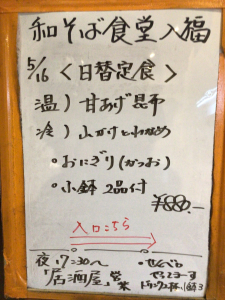 和そば食堂 入福
5/16 〈日替定食〉
温）甘あげ昆布
冷）山かけとわかめ
• おにぎり(かつお)
• 小鉢 2品付
¥880.-
入口こちら
夜17:30〜
「居酒屋」営業
• せんべろ